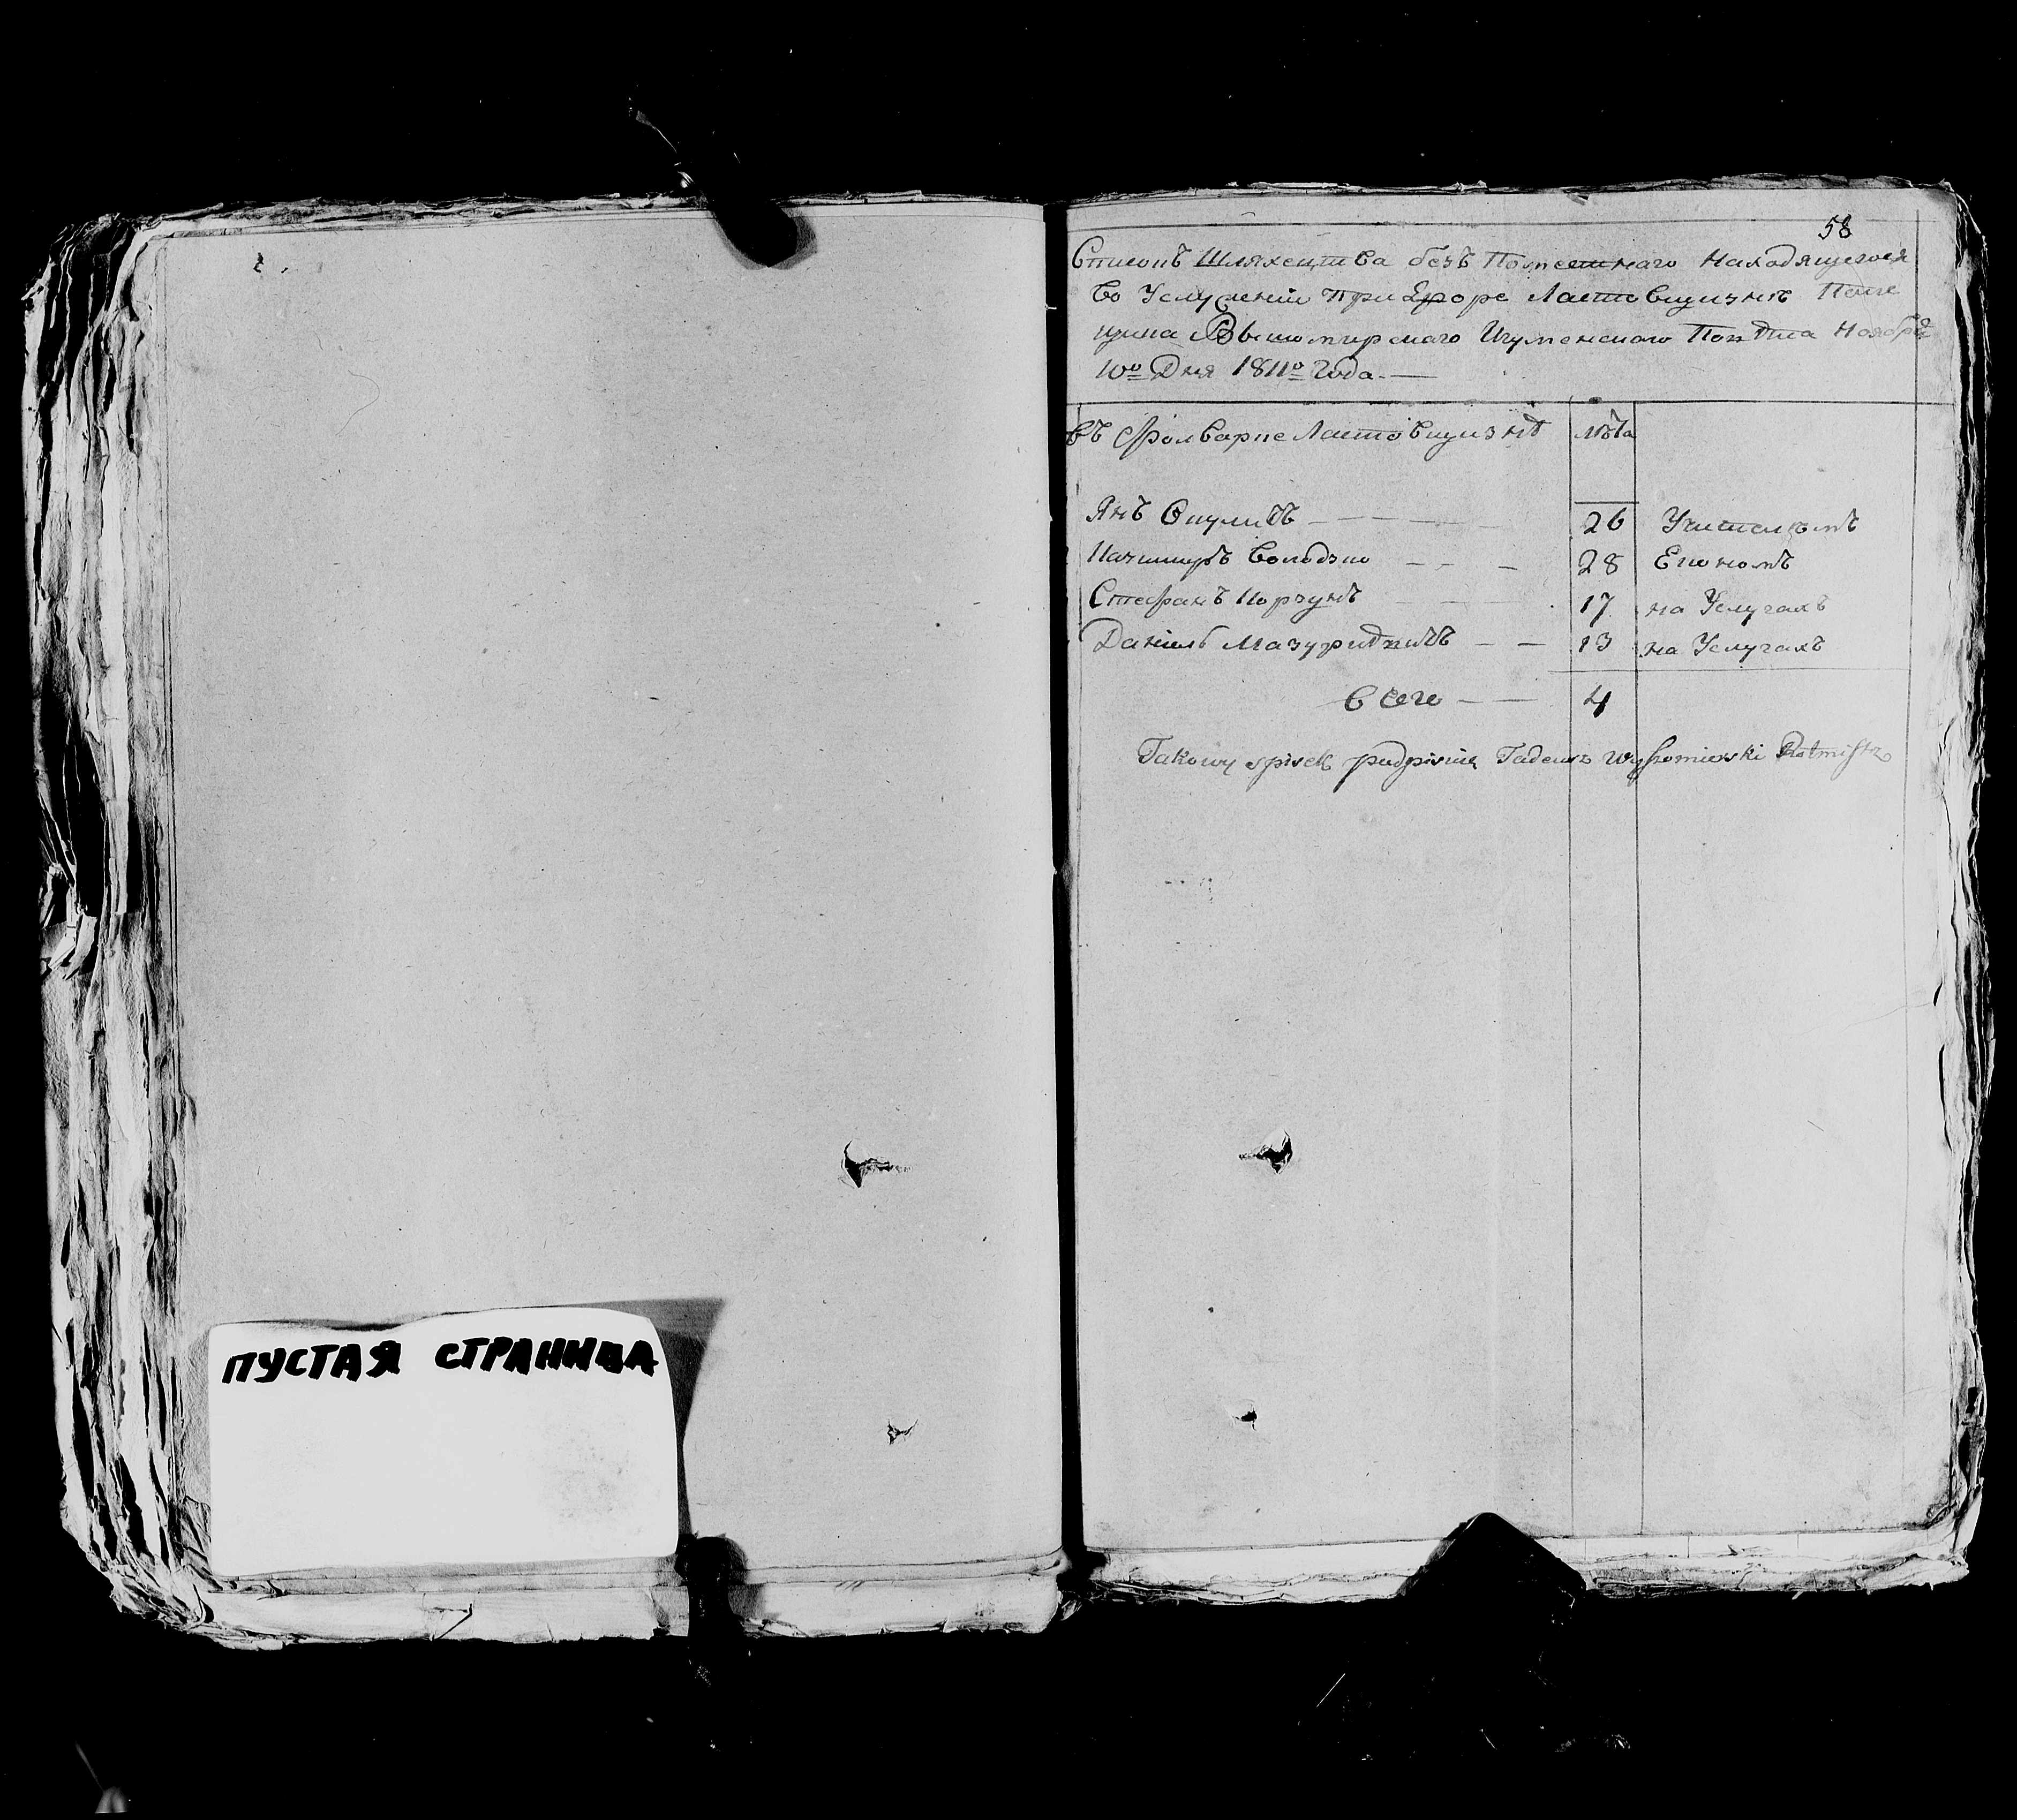 58
Списокъ Шляхецтва безъ Поместнаго Находящегося
во Услужении при Дворе Ластовщизнѣ Поме
щика Высомирскаго Игуменскаго Повѣта Ноября
10го Дня 1811го Года.—
въ Фолварке Ластовщизнѣ лѣта
Янъ Окуличъ — — — — — 26 Учителемъ
Казимиръ Володзко — — — 28 Економъ
Стефанъ Корзунъ — — — 17 на Услугахъ
Даніель Мазуркевичъ — — 13 на Услугахъ
всего — — 4
Takowy spisek podpisuię Tadeusz Rotmistrz
ПУСТАЯ СТРАНИЦА